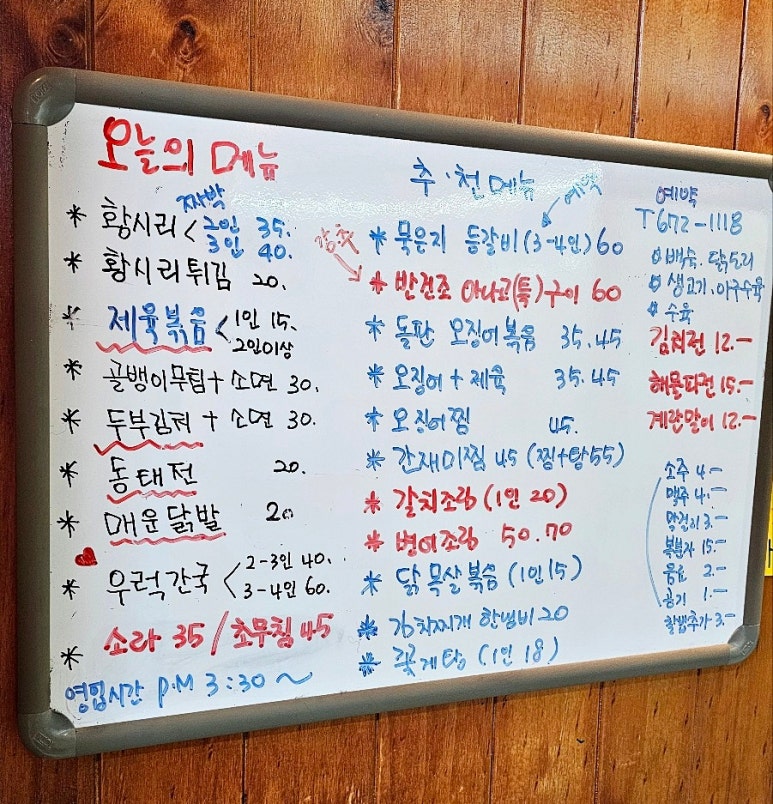 오늘의 메뉴
* 황시리 < 짜박 2인 35.
3인 40.
* 황시리튀김 20.
* 제육볶음 < 1인 15.
2인이상
* 골뱅이무침 + 소면 30.
* 두부김치 + 소면 30.
* 동태전 20.
* 매운닭발 20
* 우럭간국 < 2-3인 40.
3-4인 60.
* 소라 35 / 초무침 45
영업시간 P.M 3:30 ~
추·천메뉴
예약
* 묵은지 등갈비 (3-4인) 60
강추
* 반건조 아나고(특)구이 60
* 돌판 오징어볶음 35.45
* 오징어 + 제육 35.45
* 오징어찜 45.
* 간재미찜 45 (찜+탕55)
* 갈치조림 (1인 20)
* 병어조림 50.70
* 닭목살볶음 (1인15)
* 김치찌개 한냄비 20
* 꽃게탕 (1인 18)
예약
T672-1118
백숙. 닭도리
생고기.아구수육
수육
김치전 12.-
해물파전 15.-
계란말이 12.-
소주 4.-
맥주 4.-
막걸리 3.-
복분자 15.-
음료 2.-
공기 1.-
볶밥추가 3.-